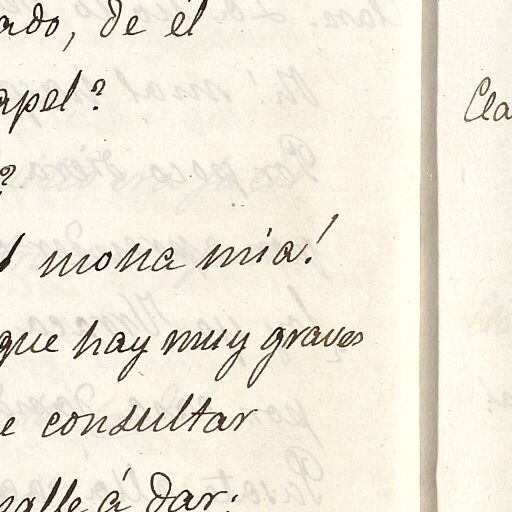 ado, de él
apel?
?
mona mia!
que hay muy graves
e consultar
valle á dar:
Cla